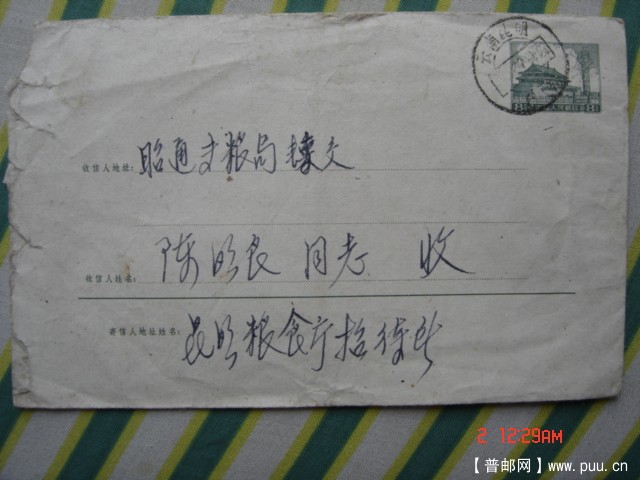 云南昆明
收信人地址: 昭通专粮局 交
收信人姓名: 陈明良 同志 收
寄信人地址姓名: 昆明粮食厅
2 12:29AM
【普邮网】www.puu.cn